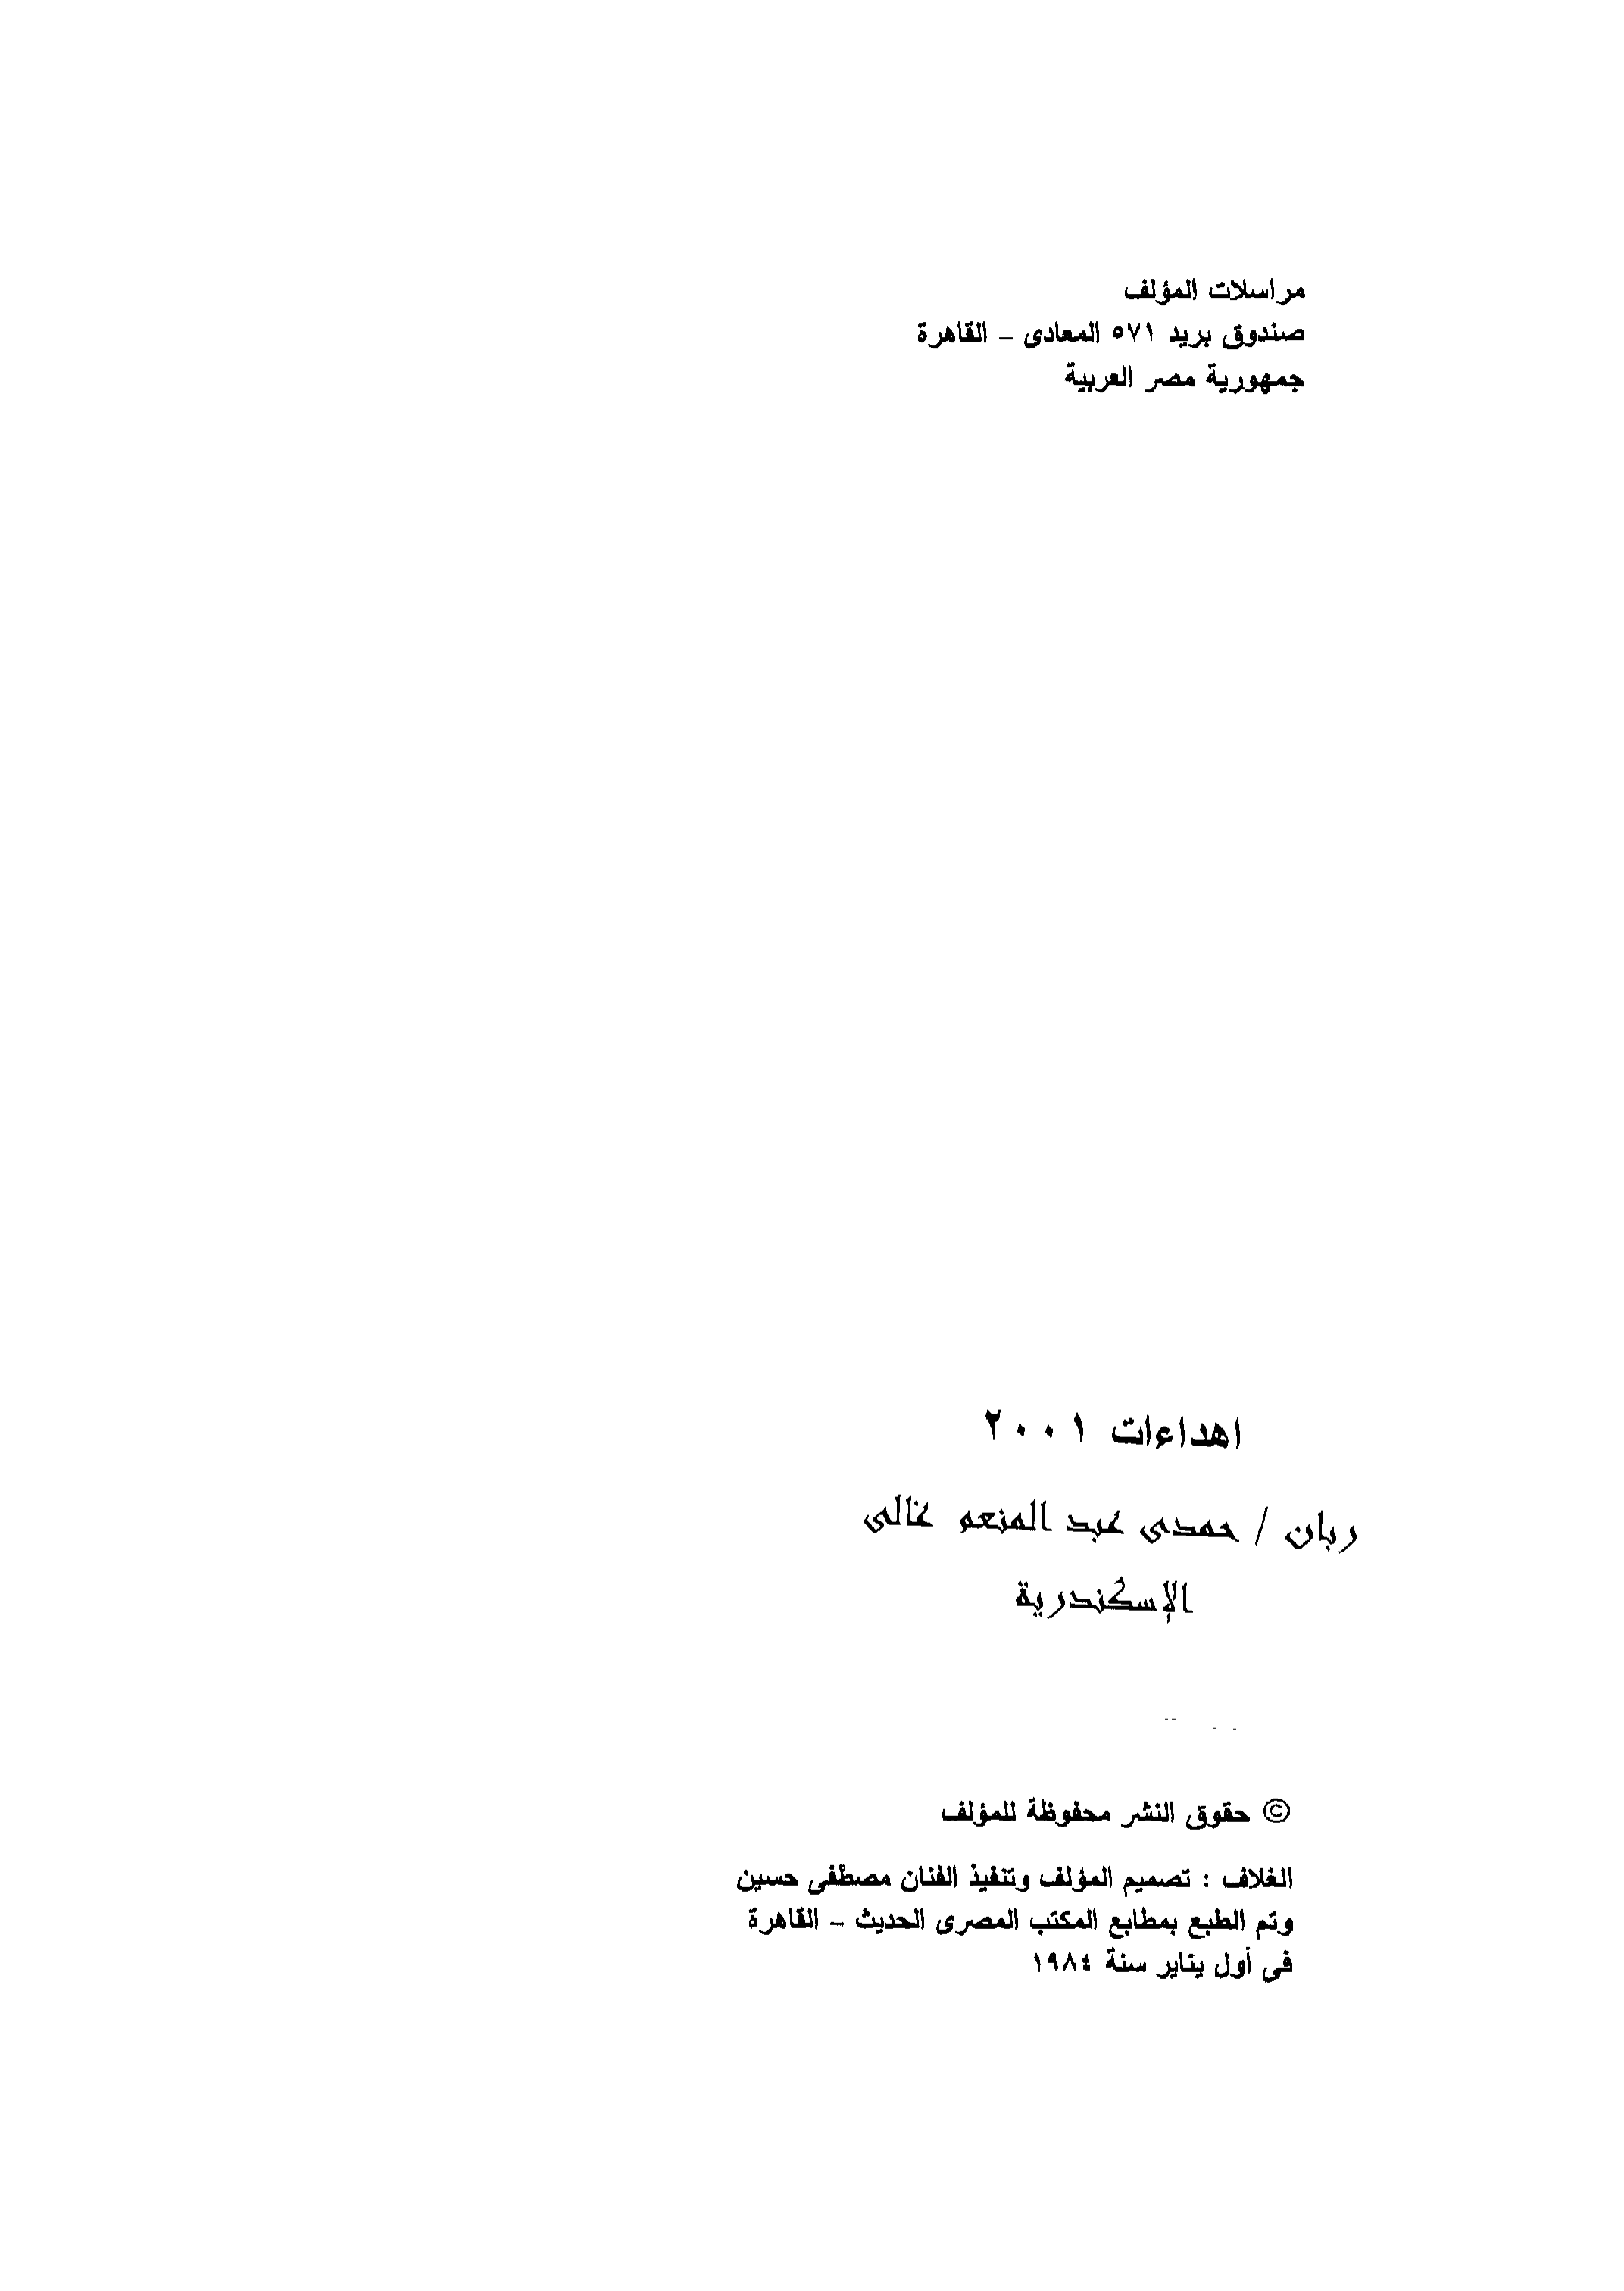 مراسلات المؤلف
صندوق بريد ٥٧١ المعادى – القاهرة
جمهورية مصر العربية
اهداءات ٢٠٠١
ربان / حمدى عبد المنعم غالى
الإسكندرية
© حقوق النشر محفوظة للمؤلف
الغلاف : تصميم المؤلف وتنفيذ الفنان مصطفى حسين
وتم الطبع بمطابع المكتب المصرى الحديث – القاهرة
فى أول يناير سنة ١٩٨٤